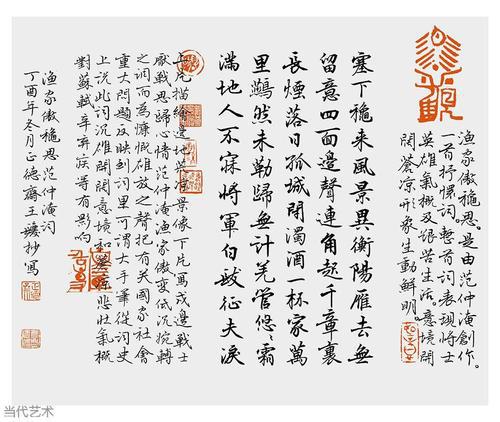 渔家傲穐思。是由范仲淹创作。
一首抒懷词。整首词表现將士
英雄氣概及艰苦生活。意境開
闊蒼凉。形象生動鮮明。
塞下穐来風景異衡陽雁去無
留意四面邊聲連角起千章裏
長煙落日孤城閉濁酒一杯家萬
里鷰然未勒歸無計羌管悠〻霜
滿地人不寐將軍白髮征夫淚
上片描绘邊地荒凉景像下片寫戍邊戰士
厭戰思歸心情范仲淹渔家傲变低沉婉轉
之调而為慷慨雄放之聲把有关國家社會
重大問题反映到词里可谓大手筆從词史
上说此词沉雄開闊意境和蒼凉悲壮氣概
對蘇軾辛弃疾等有影响
渔家傲穐思范仲淹词
丁酉年冬月正德齋王抄寫
当代艺术